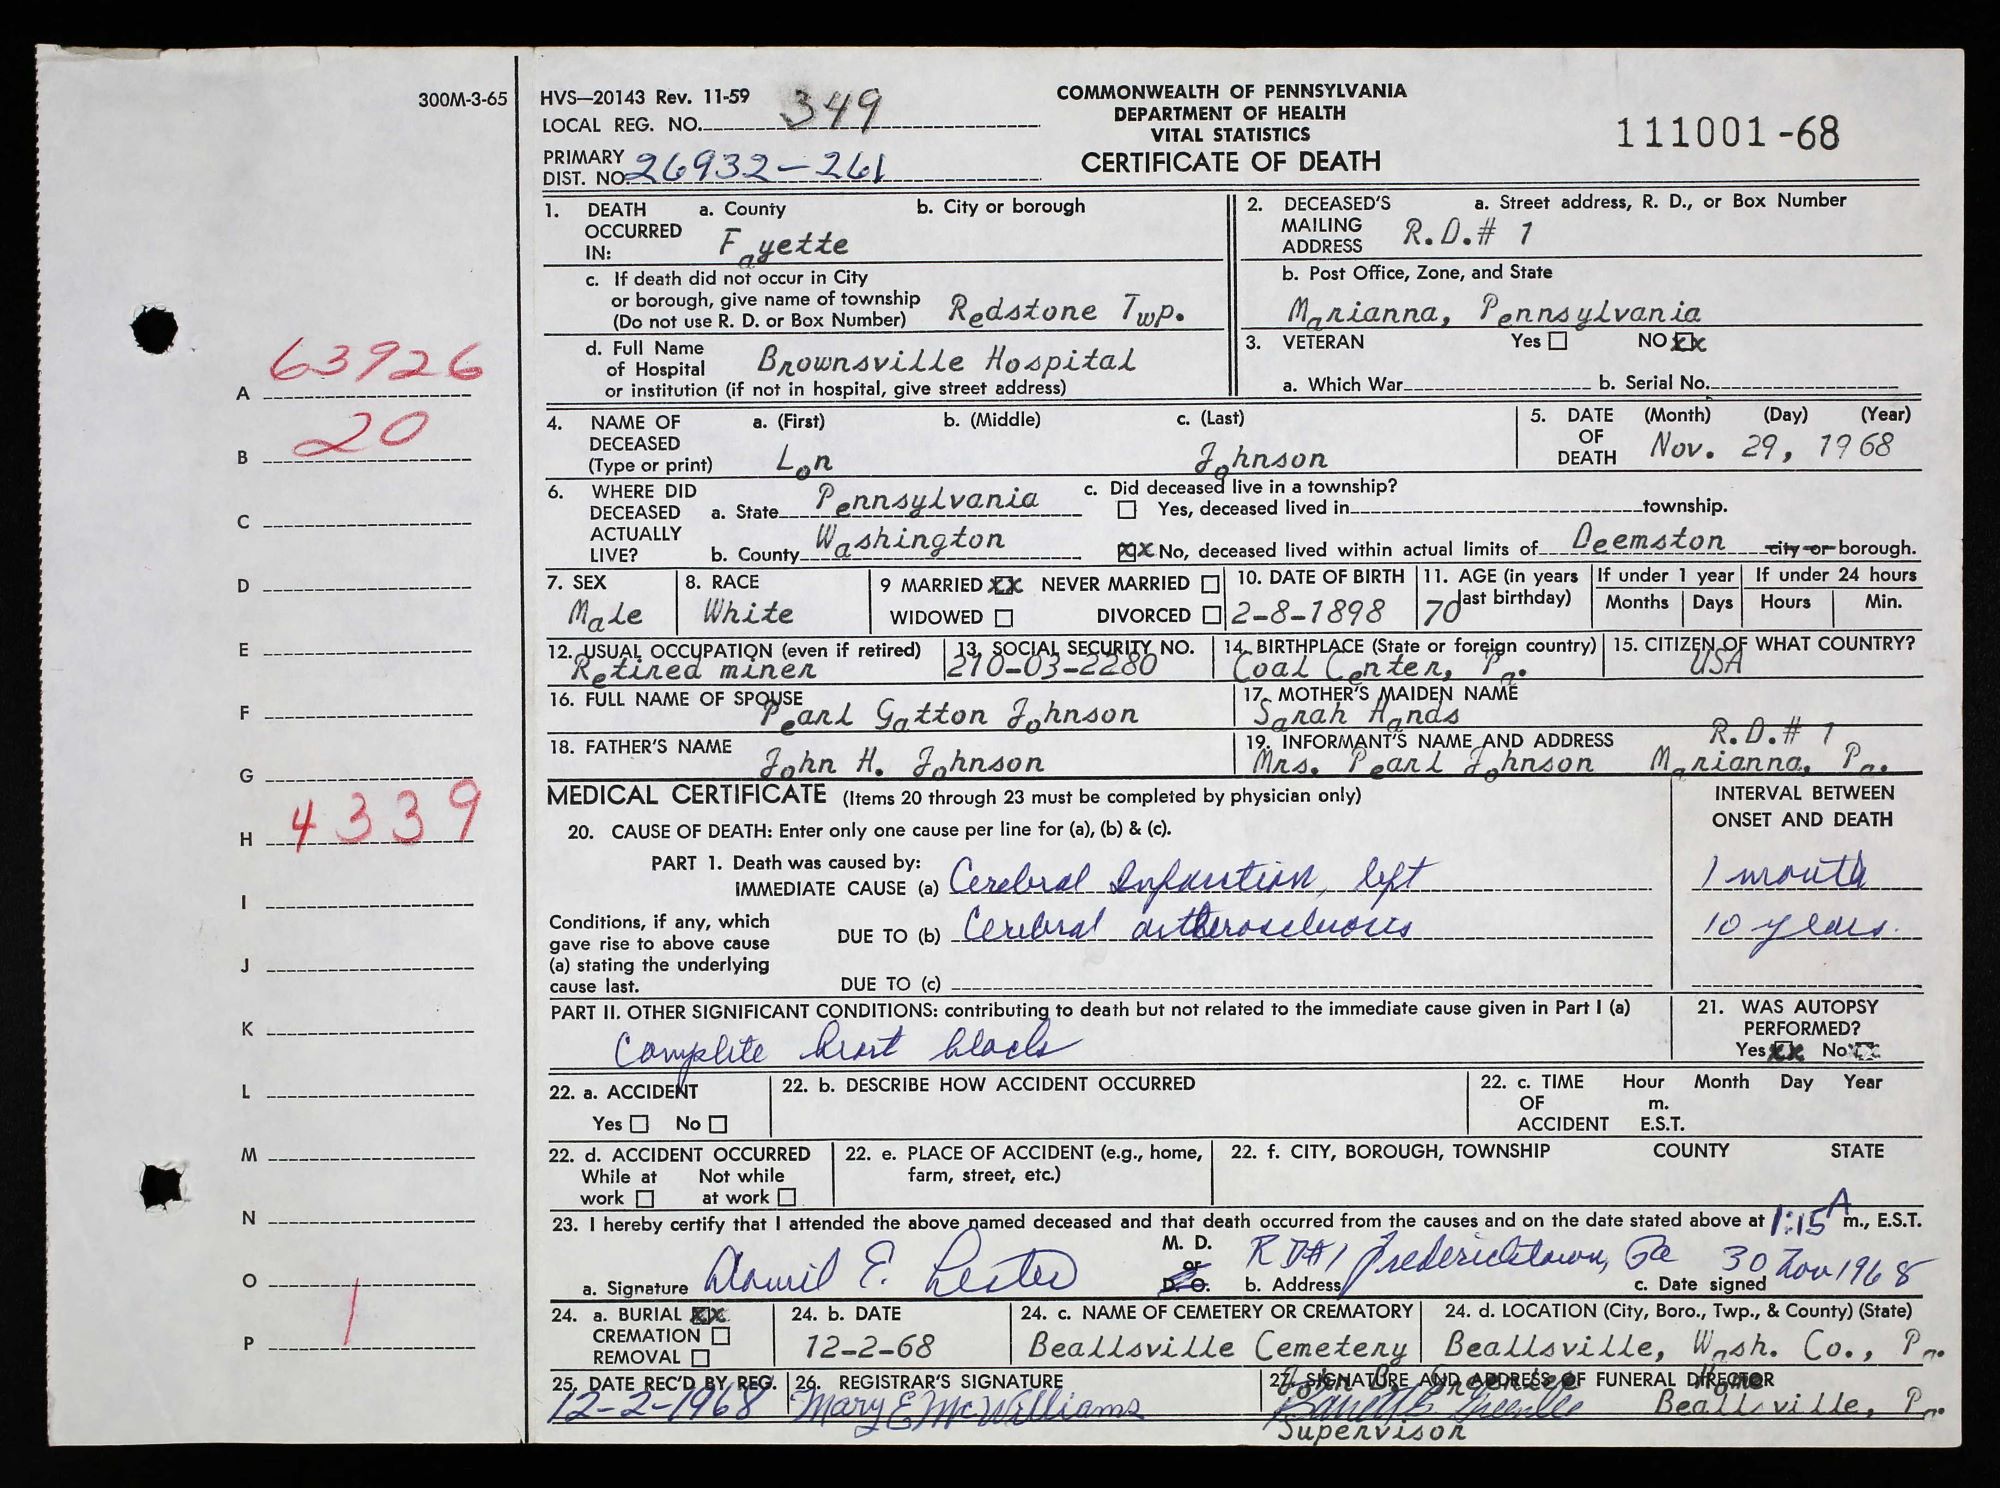 300M-3-65
HVS—20143 Rev. 11-59
LOCAL REG. NO. 349
PRIMARY DIST. NO. 26932-261
COMMONWEALTH OF PENNSYLVANIA
DEPARTMENT OF HEALTH
VITAL STATISTICS
CERTIFICATE OF DEATH
111001-68
A 63926
B 20
C
D
E
F
G
H 4339
I
J
K
L
M
N
O
P 1
1. DEATH OCCURRED IN: a. County Fayette b. City or borough
c. If death did not occur in City
or borough, give name of township Redstone Twp.
(Do not use R. D. or Box Number)
d. Full Name
of Hospital Brownsville Hospital
or institution (if not in hospital, give street address)
2. DECEASED'S MAILING ADDRESS a. Street address, R. D., or Box Number
R.D.# 1
b. Post Office, Zone, and State
Marianna, Pennsylvania
3. VETERAN Yes NO XX
a. Which War b. Serial No.
4. NAME OF DECEASED (Type or print) a. (First) b. (Middle) c. (Last)
Lon Johnson
5. DATE OF DEATH (Month) (Day) (Year)
Nov. 29, 1968
6. WHERE DID DECEASED ACTUALLY LIVE?
a. State Pennsylvania
b. County Washington
c. Did deceased live in a township?
Yes, deceased lived in township.
XX No, deceased lived within actual limits of Deemston city or borough.
7. SEX Male
8. RACE White
9 MARRIED XX NEVER MARRIED
WIDOWED DIVORCED
10. DATE OF BIRTH 2-8-1898
11. AGE (in years last birthday) 70
If under 1 year Months Days
If under 24 hours Hours Min.
12. USUAL OCCUPATION (even if retired) Retired miner
13. SOCIAL SECURITY NO. 210-03-2280
14. BIRTHPLACE (State or foreign country) Coal Center, Pa.
15. CITIZEN OF WHAT COUNTRY? USA
16. FULL NAME OF SPOUSE Pearl Gatton Johnson
17. MOTHER'S MAIDEN NAME Sarah Hands
18. FATHER'S NAME John H. Johnson
19. INFORMANT'S NAME AND ADDRESS R.D.# 1
Mrs. Pearl Johnson Marianna, Pa.
MEDICAL CERTIFICATE (Items 20 through 23 must be completed by physician only)
INTERVAL BETWEEN ONSET AND DEATH
20. CAUSE OF DEATH: Enter only one cause per line for (a), (b) & (c).
PART 1. Death was caused by:
IMMEDIATE CAUSE (a) Cerebral Infarction, left 1 month
Conditions, if any, which
gave rise to above cause
(a) stating the underlying
cause last.
DUE TO (b) Cerebral artherosclerosis 10 years.
DUE TO (c)
PART II. OTHER SIGNIFICANT CONDITIONS: contributing to death but not related to the immediate cause given in Part I (a)
Complete heart block
21. WAS AUTOPSY PERFORMED?
Yes XX No
22. a. ACCIDENT
Yes No
22. b. DESCRIBE HOW ACCIDENT OCCURRED
22. c. TIME OF ACCIDENT Hour Month Day Year
m.
E.S.T.
22. d. ACCIDENT OCCURRED
While at work Not while at work
22. e. PLACE OF ACCIDENT (e.g., home, farm, street, etc.)
22. f. CITY, BOROUGH, TOWNSHIP COUNTY STATE
23. I hereby certify that I attended the above named deceased and that death occurred from the causes and on the date stated above at 1:15 A m., E.S.T.
a. Signature E. Lester M. D. or D. O. b. Address RD#1 Fredericktown, Pa c. Date signed 30 Nov 1968
24. a. BURIAL XX
CREMATION
REMOVAL
24. b. DATE 12-2-68
24. c. NAME OF CEMETERY OR CREMATORY Beallsville Cemetery
24. d. LOCATION (City, Boro., Twp., & County) (State)
Beallsville, Wash. Co., Pa.
25. DATE REC'D BY REG. 12-2-1968
26. REGISTRAR'S SIGNATURE Mary E McWilliams
27. SIGNATURE AND ADDRESS OF FUNERAL DIRECTOR
John B. Greenlee Home
Greenlee Beallsville, Pa.
Supervisor